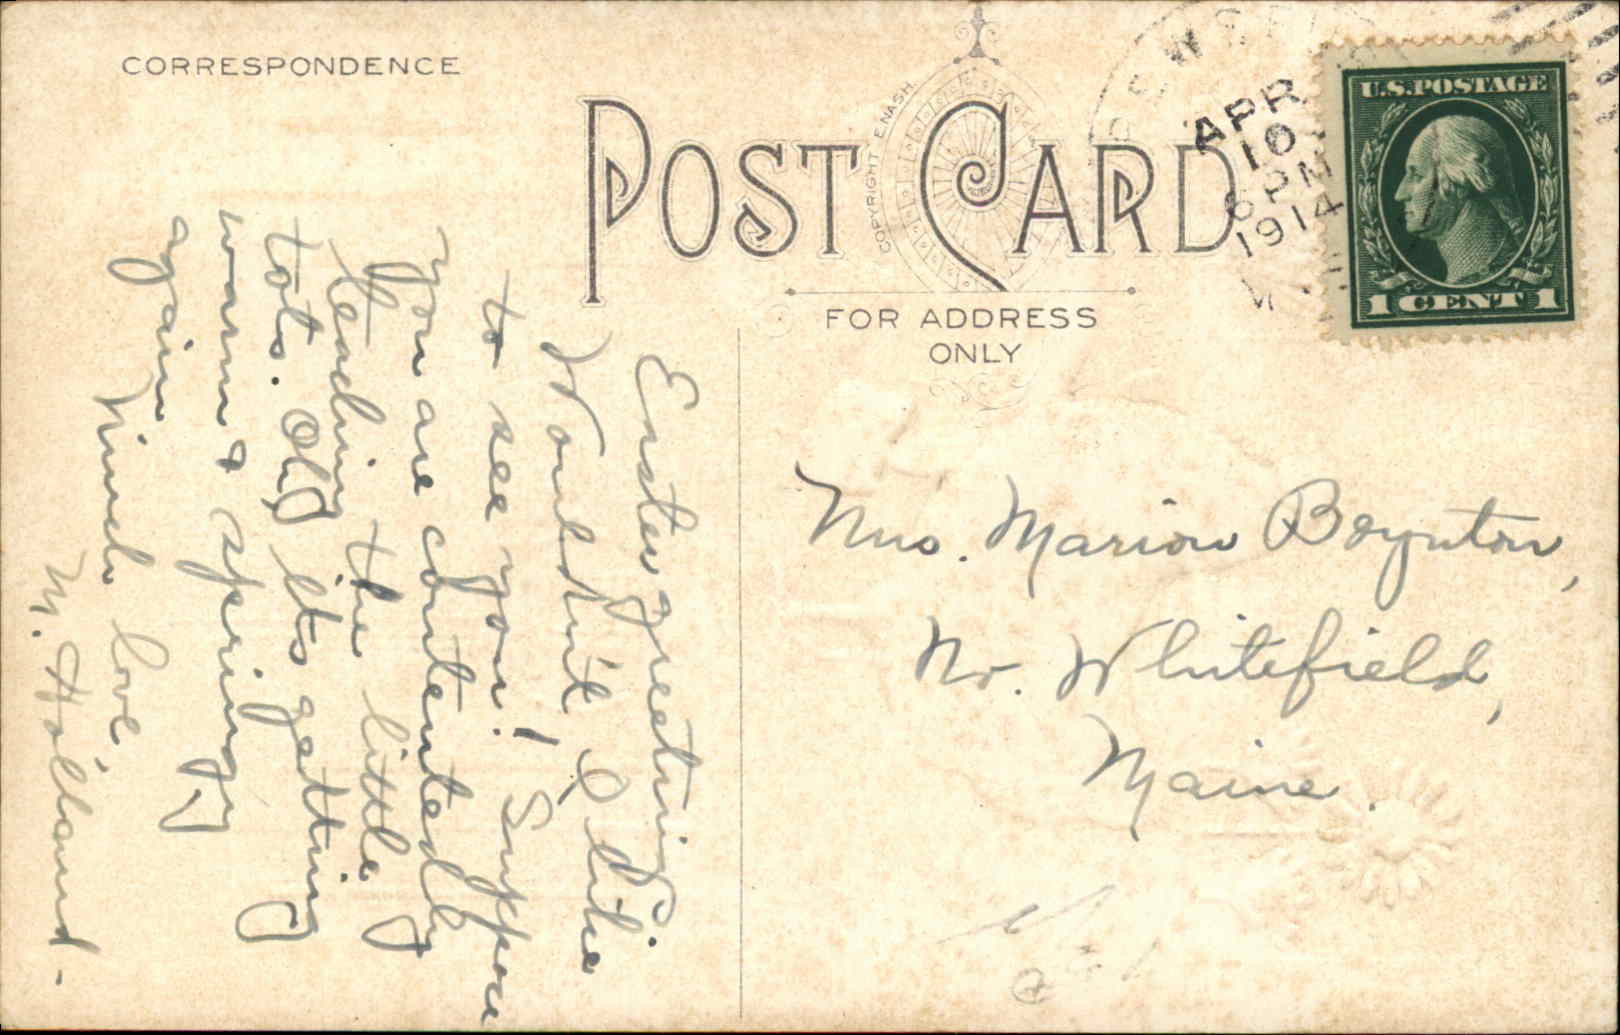 CORRESPONDENCE
POST CARD
COPYRIGHT E. NASH
FOR ADDRESS
ONLY
APR
10
6 PM
1914
U.S. POSTAGE
1 CENT 1
Easter greetings.
Wouldn't I like
to see you! Suppose
you are contentedly
teaching the little
tots. Old its getting
warm & springy
again
Much love,
M. Holland-
Mrs. Marion Boynton,
No. Whitefield,
Maine.